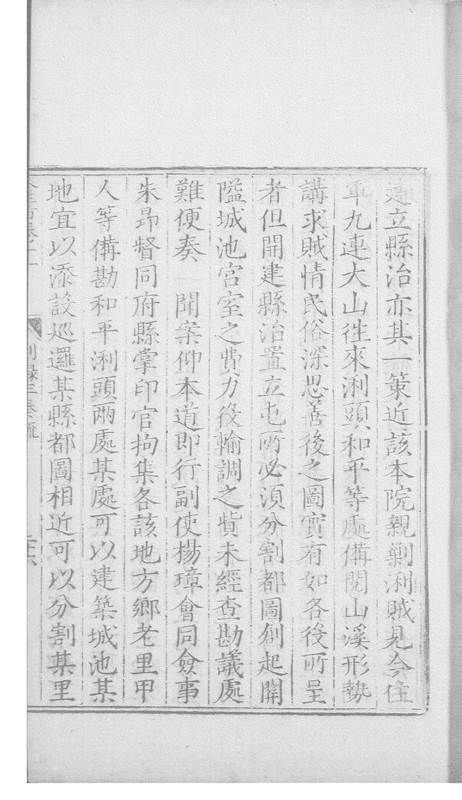 立縣治亦其一策近該本院親剿浰賊見今住
軍九連大山往來浰頭和平等處備閱山溪形勢
講求賊情民俗深思善後之圖實有如各役所呈
者但開建縣治置立屯所必須分割都圖創起關
隘城池宮室之費力役輸調之貲未經查勘議處
難便奏 聞案仰本道即行副使楊璋會同僉事
朱昂督同府縣掌印官拘集各該地方鄉老里甲
人等備勘和平浰頭兩處某處可以建築城池某
地宜以添設廵邏某縣都圖相近可以分割某里